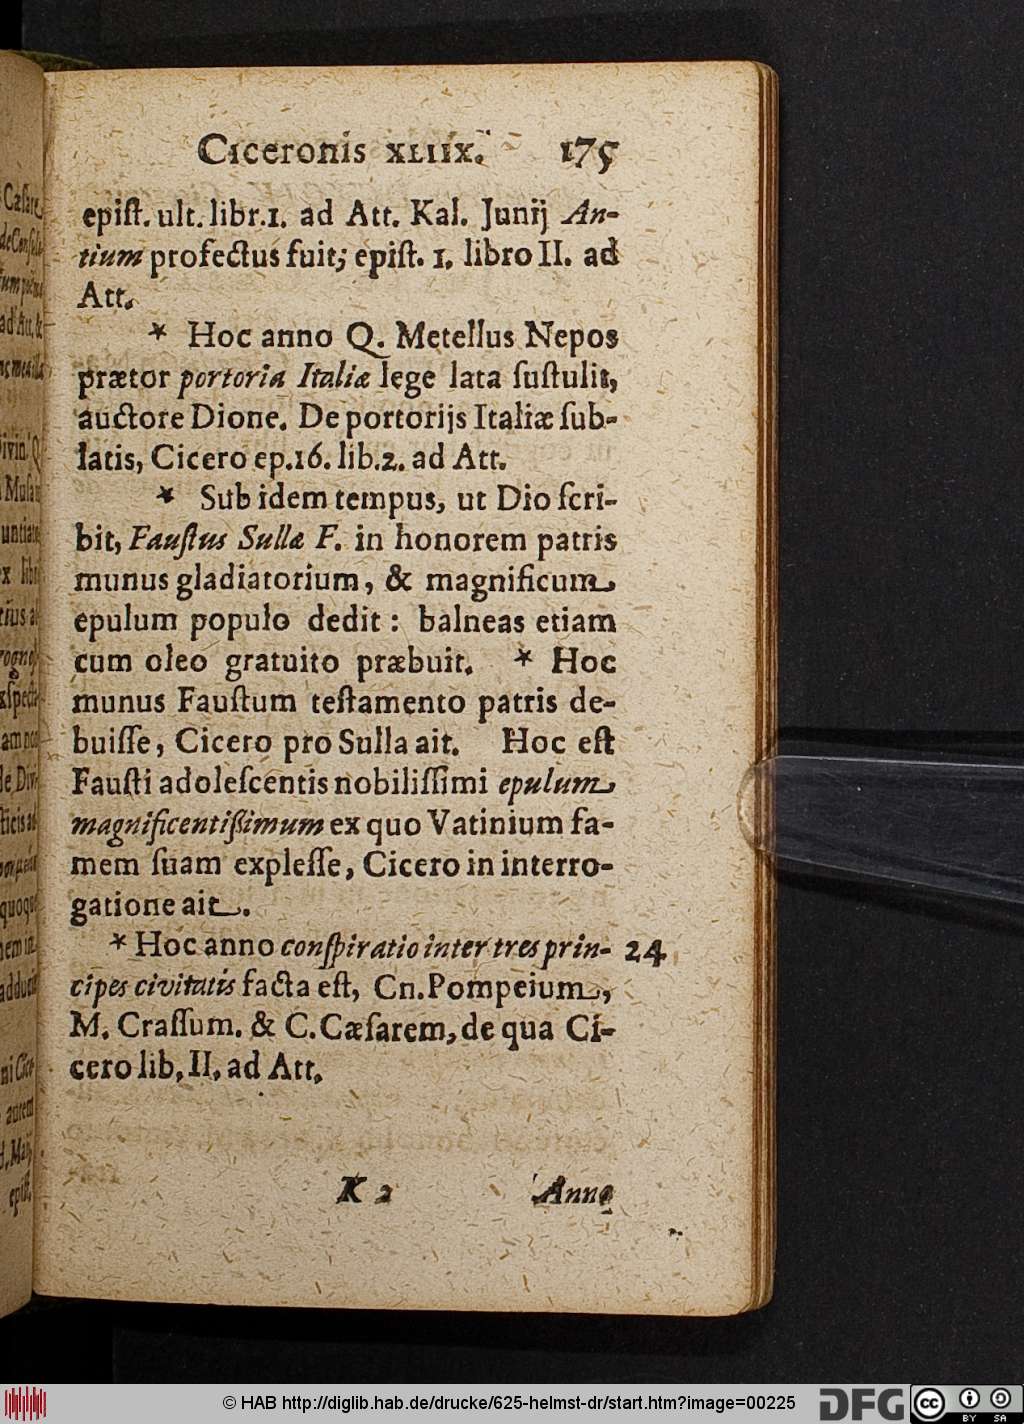 Ciceronis XLIIX. 175
epiſt. ult. libr.1. ad Att. Kal. Junij An-
tium profectus fuit; epiſt. 1. libro II. ad
Att.
* Hoc anno Q. Metellus Nepos
prætor portoria Italiæ lege lata ſuſtulit,
auctore Dione. De portorijs Italiæ ſub-
latis, Cicero ep.16. lib.2. ad Att.
* Sub idem tempus, ut Dio ſcri-
bit, Fauſtus Sullæ F. in honorem patris
munus gladiatorium, & magnificum
epulum populo dedit : balneas etiam
cum oleo gratuito præbuit. * Hoc
munus Fauſtum teſtamento patris de-
buiſſe, Cicero pro Sulla ait. Hoc eſt
Fauſti adoleſcentis nobiliſſimi epulum
magnificentißimum ex quo Vatinium fa-
mem ſuam expleſſe, Cicero in interro-
gatione ait.
* Hoc anno conſpiratio inter tres prin- 24
cipes civitatis facta eſt, Cn.Pompeium,
M. Craſſum. & C.Cæſarem, de qua Ci-
cero lib, II. ad Att.
K 2 Anno
© HAB http://diglib.hab.de/drucke/625-helmst-dr/start.htm?image=00225
DFG
cc
BY SA